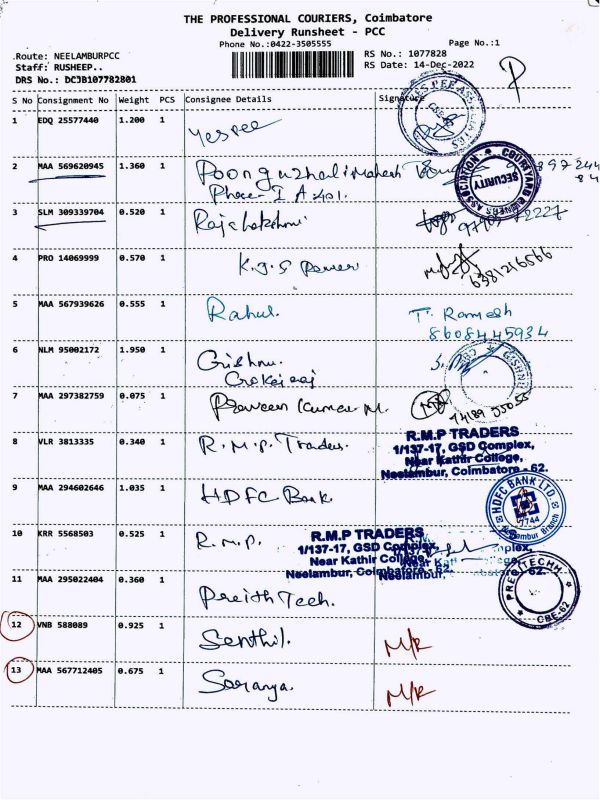 THE PROFESSIONAL COURIERS, Coimbatore
Delivery Runsheet - PCC
Phone No.:0422-3505555
Page No.:1
Route: NEELAMBURPCC
Staff: RUSHEEP..
DRS No.: DCJB107782801
RS No.: 1077828
RS Date: 14-Dec-2022
S No Consignment No Weight PCS Consignee Details Signature
1 EDQ 25577440 1.200 1 yespee
2 MAA 569620945 1.360 1 Poonguzhali Mahesh
Phase-I A 401.
COURTYARD OWNERS ASSOCIATION
SECURITY
3 SLM 309339704 0.520 1
4 PRO 14069999 0.570 1 K.J.S Power
6381216566
5 MAA 567939626 0.555 1 Rahul. T. Ramesh
8608445934
6 NLM 95002172 1.950 1
7 MAA 297382759 0.075 1 Praveen Kumar M.
8 VLR 3813335 0.340 1 R.M.P. Traders.
R.M.P TRADERS
1/137-17, GSD Complex,
Near Kathir College,
Neelambur, Coimbatore - 62.
9 MAA 294602646 1.035 1 HDFC Bank.
HDFC BANK LTD.
7744
10 KRR 5568503 0.525 1 R.M.P.
R.M.P TRADERS
1/137-17, GSD Complex,
Near Kathir College,
Neelambur, Coimbatore
11 MAA 295022404 0.360 1 Preith Tech.
CBE-62
12 VNB 588089 0.925 1 Senthil. M/R
13 MAA 567712405 0.675 1 Saranya. M/R